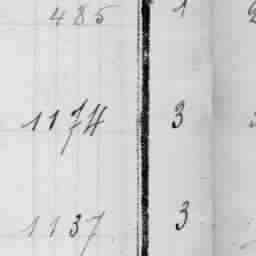 485 1
1174 3
1137 3